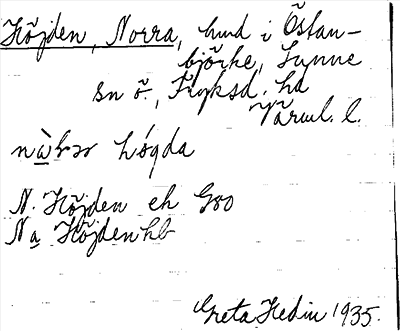 Höjden, Norra, hmd i Östan-
björke, Sunne
sn ö., Fryksd. hd
Värml. l.
nò̱r̄ər hö́gda
N. Höjden ek Goo
Na Höjden hb
Greta Hedin 1935.